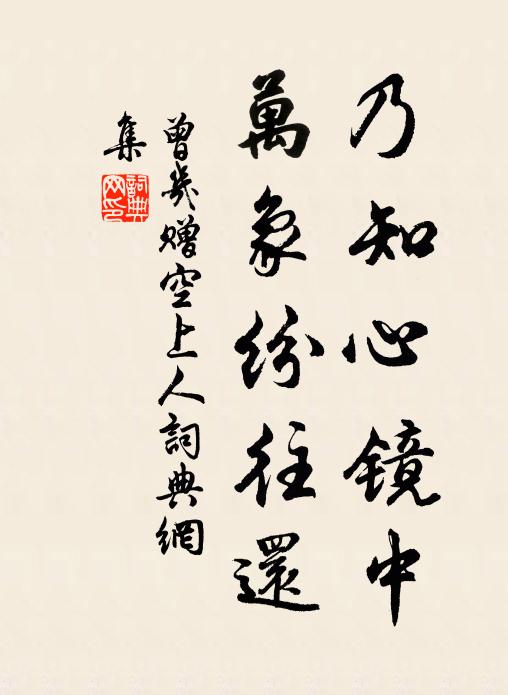 乃知心镜中
萬象紛往還
曾幾赠空上人詞典網
集
詞典網印